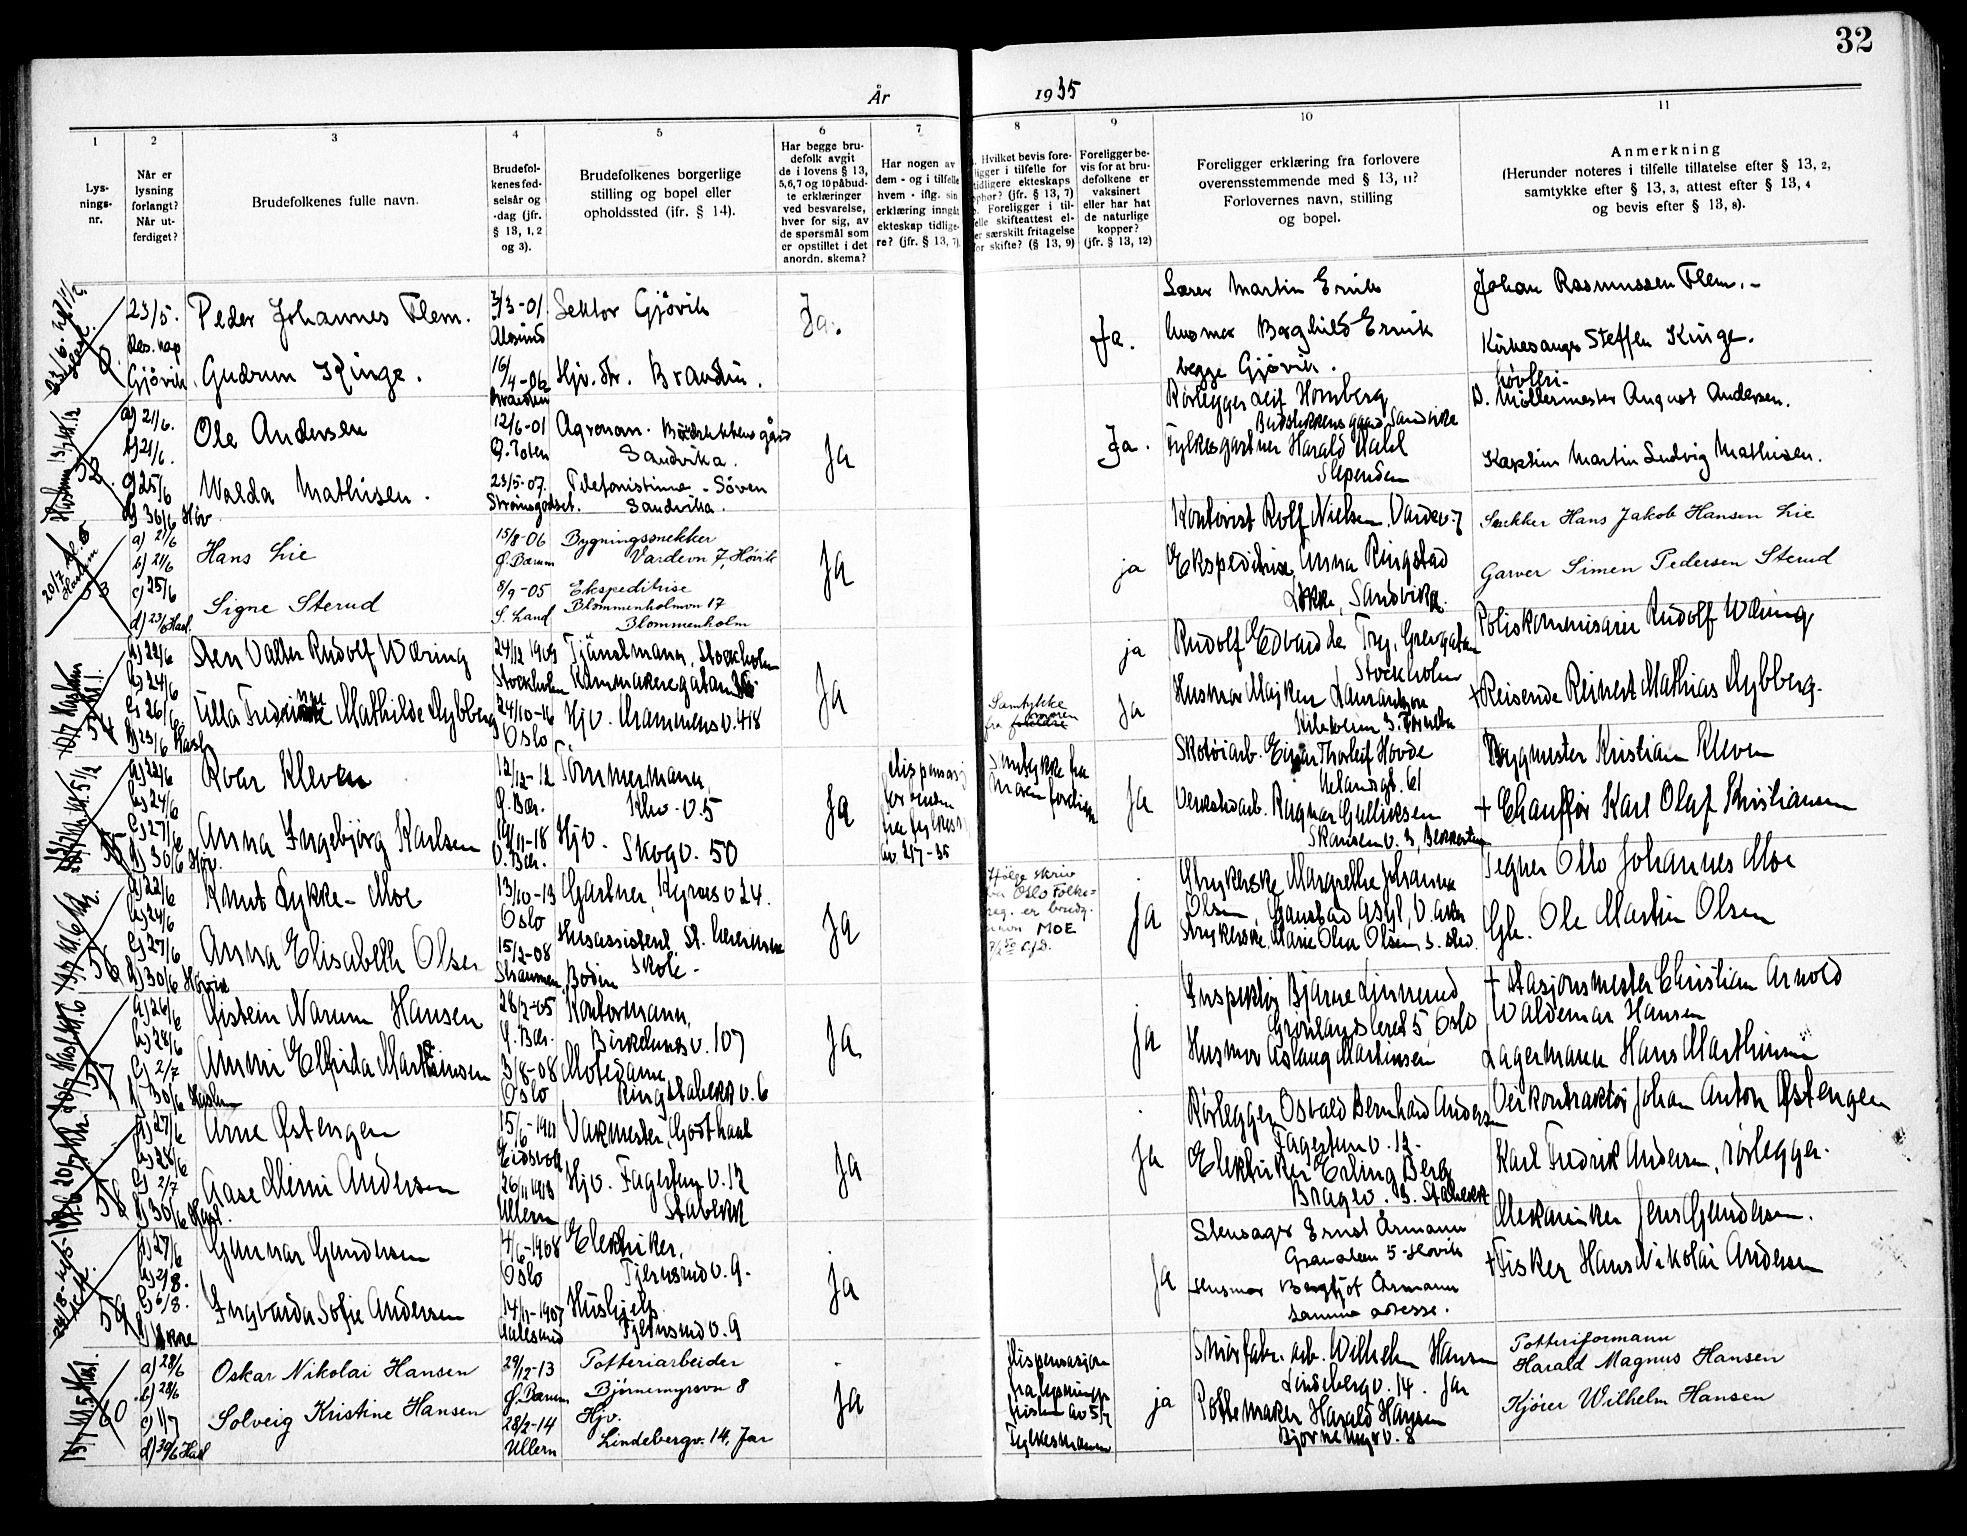 32
År 1935
1 2 3 4 5 6 7 8 9 10 11
Lys-
nings-
nr.
Når er
lysning
forlangt?
Når ut-
ferdiget?
Brudefolkenes fulle navn.
Brudefol-
kenes fød-
selsår og
-dag (jfr.
§ 13, 1, 2
og 3).
Brudefolkenes borgerlige
stilling og bopel eller
opholdssted (jfr. § 14).
Har begge bru-
defolk avgit
de i lovens § 13,
5,6,7 og 10 påbud-
te erklæringer
ved besvarelse,
hver for sig, av
de spørsmål som
er opstillet i det
anordn. skema?
Har nogen av
dem - og i tilfelle
hvem - iflg. sin
erklæring inngåt
ekteskap tidlige-
re? (jfr. § 13, 7)
Hvilket bevis fore-
ligger i tilfelle for
tidligere ekteskaps
ophør? (jfr. § 13, 7)
Foreligger i til-
felle skifteattest el-
er særskilt fritagelse
for skifte? (§ 13, 9)
Foreligger be-
vis for at bru-
defolkene er
vaksinert
eller har hat
de naturlige
kopper?
(jfr. § 13, 12)
Foreligger erklæring fra forlovere
overensstemmende med § 13, 11?
Forlovernes navn, stilling
og bopel.
Anmerkning
(Herunder noteres i tilfelle tillatelse efter § 13, 2,
samtykke efter § 13, 3, attest efter § 13, 4
og bevis efter § 13, 8).
23/5.
Res. kap
Gjøvik
Peder Johannes Flem.
3/3-01
Ålesund
Lektor Gjøvik
Ja.
Ja.
Lærer Martin Ervik
husmor Borghild Ervik
begge Gjøvik.
Johan Rasmussen Flem.
Gudrun Kinge.
16/4-06
Hjv. str. Brandbu.
Kirkesanger Steffen Kinge.
a) 21/6.
b) 21/6.
c) 25/6
d) 30/6 Høv.
Ole Andersen
12/6-01
Ø. Toten
Agronom.
Sandvika.
Ja
Ja.
Rørlegger Leif Hornberg
Sandvika
Fylkesgartner Harald Dahl
Slependen
Møllermester August Andersen.
Walda Mathisen.
23/5-07.
Strømsgodset.
Telefonistinne - Søven
Sandvika.
Kaptein Martin Ludvig Mathisen.
53
a) 21/6
b) 21/6
c) 25/6
d) 23/6 Hasl.
Hans Lie
15/8-06
Ø. Bærum
Bygningssnekker
Vardevn 7, Høvik
Ja
ja
Kontorist Rolf Nielsen, Vardev. 7
Ekspeditrise Anna Ringstad
Løkke, Sandvika.
Snekker Hans Jakob Hansen Lie
Signe Sterud
8/9-05
S. Land
Ekspeditrise
Blommenholmvn 17
Blommenholm
Garver Simen Pedersen Sterud
54
a) 22/6
b) 24/6
c) 26/6
d) 23/6 Hasl.
Sten Valter Rudolf Wæring
24/12 1909
Stockholm
Tjänstmann, Stockholm
Kammakaregatan 36
Ja
ja
Ja
Rudolf Edvard de Try, Grevgatan
Stockholm
Poliskommisarie Rudolf Wæring
Ulla Fredrikke Mathilde Dybberg
24/10-16
Oslo
Hjv. Drammensv. 418
Samtykke
fra moren
Husmor Majken Lauantzon
+ Reisende Reinert Mathias Dybberg.
55
a) 22/6
b) 24/6
c) 27/6
d) 30/6 Høv.
Roar Kleven
12/12-12
Ø. Bær.
Tømmermann,
Klev. v. 5
Ja
Dispensasj
for bruden
fra fylkesm
av 2/7-35
Samtykke fra
moren foreligger
Ja
Skotøiarb. Einar Thorleif Hovde
Uelandsgt. 61
Verkstedarb. Ragnar Gulliksen
Skansen v. 3, Bekkestua
Bygmester Kristian Kleven
Anna Ingebjørg Karlsen
19/11-18
V. Bær.
Hjv.
Skogv. 50
+ Chauffør Karl Olaf Kristiansen
56
a) 22/6
b) 24/6
c) 27/6
d) 30/6 Høvik
Knut Lykke-Moe
13/10-13
Oslo
Gartner, Kyrres v 24.
Ja
Ifølge skriv
fra Oslo Folke-
reg. er brudg.
navn MOE
Ja
Strykerske Margrethe Johanna
Olsen, Gaustad Asyl, V. Aker
Strykerske Marie Olea Olsen s. sted.
Tegner Otto Johannes Moe
Anna Elisabeth Olsen
15/2-08
Straumen, Bodin
Husassistent, St.
skole -
Gb. Ole Martin Olsen
57
a) 26/6
b) 28/6
c) 2/7
d) 30/6 Haslum
Øistein Narum Hansen
28/2-05
Ø. Bær.
Kontormann,
Birkelunds v. 107
Ja.
Ja
Inspektør Bjarne Ljunerud
Grønlandsleret 5 Oslo
Husmor Aslaug Martinsen
+ Stasjonsmester Christian Arnold
Waldemar Hansen
Anni Elfrida Marthinsen
3/8-08
Oslo
Motedame
Ringstabekk v. 6
Lagermann Hans Marthinsen
58
a) 27/6
b) 28/6
c) 2/7
d) 30/6 Hasl.
Arne Østengen
15/6-1911
Eidsvoll
Vakmester, Godthaab
Ja
Ja
Rørlegger Osvald Bernhard Andersen
Fagertun v. 12.
Elektriker Erling Berg
Bragev. 3. Stabekk
Veikontraktør Johan Anton Østengen
Aase Mimi Andersen
26/11 1913
Ullern
Hjv. Fagertun v. 12
Stabekk
Karl Fredrik Andersen, rørlegger.
59
a) 27/6
b) 2/8.
c) 6/8.
Gunnar Gundersen
4/6-1908
Oslo
Elektriker,
Tjernsrud v. 9.
Ja
Ja
Stensager Ernst Ärmann
Granalleen 5 - Høvik
Husmor Bergljot Ärmann
samme adresse.
Mekaniker Jens Gundersen.
Ingvarda Sofie Andersen
14/11-1907
Aalesund
Hushjelp
Tjernsrud v. 9
+ Fisker Hans Nikolai Andersen
60
a) 28/6
b) 28/6
c) 1/7
d) 30/6 Hasl
Oskar Nikolai Hansen
29/12-13
Ø. Bærum
Potteriarbeider
Bjørnemyrsvn 8
Ja
Dispensasjon
fra lysnings-
fristen av 5/7
Fylkesmannen
ja
Smørfabr. arb. Wilhelm Hansen
Lindebergv. 14. Jar
Pottemaker Harald Hansen
Bjørnemyrv. 8
Potteriformann
Harald Magnus Hansen
Solveig Kristine Hansen
28/2-14
Ullern
Hjv.
Lindebergv. 14, Jar
Kjører Wilhelm Hansen